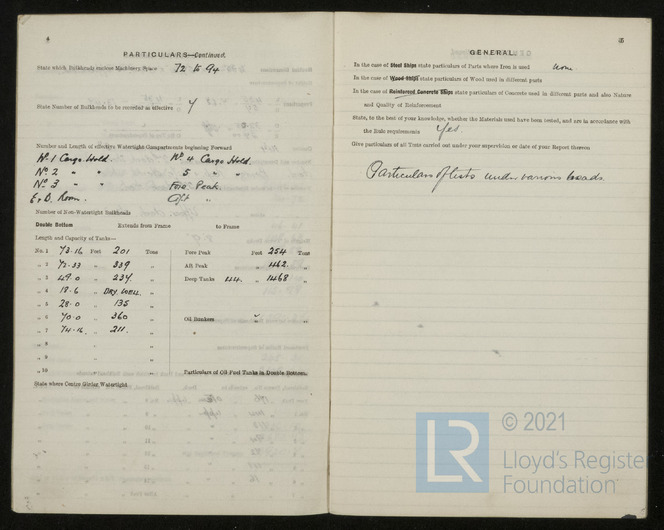 4
PARTICULARS—Continued.
State which Bulkheads enclose Machinery Space 72 to 94
State Number of Bulkheads to be recorded as effective 7
Number and Length of effective Watertight Compartments beginning Forward
No. 1 Cargo Hold. No. 4 Cargo Hold.
No 2 " " 5 " "
No 3 " " Fore Peak.
E & B. Room. Aft "
Number of Non-Watertight Bulkheads
Double Bottom Extends from Frame to Frame
Length and Capacity of Tanks—
No. 1 73.16 Feet 201 Tons Fore Peak Feet 254 Tons
" 2 72.33 " 339 " Aft Peak 462. "
" 3 49.0 " 234. " Deep Tanks 44. " 1468 "
" 4 18.6 " DRY WELL. "
" 5 28.0 " 135 "
" 6 70.0 " 360 " Oil Bunkers "
" 7 74.16. " 211. " "
" 8 " "
" 9 " "
" 10 " " Particulars of Oil Fuel Tanks in Double Bottom
State where Centre Girder Watertight
5
GENERAL.
In the case of Steel Ships state particulars of Parts where Iron is used None
In the case of Wood Ships state particulars of Wood used in different parts
In the case of Reinforced Concrete Ships state particulars of Concrete used in different parts and also Nature
and Quality of Reinforcement
State, to the best of your knowledge, whether the Materials used have been tested, and are in accordance with
the Rule requirements Yes.
Give particulars of all Tests carried out under your supervision or date of your Report thereon
Particulars of tests under various heads.
LR
© 2021
Lloyd's Register
Foundation